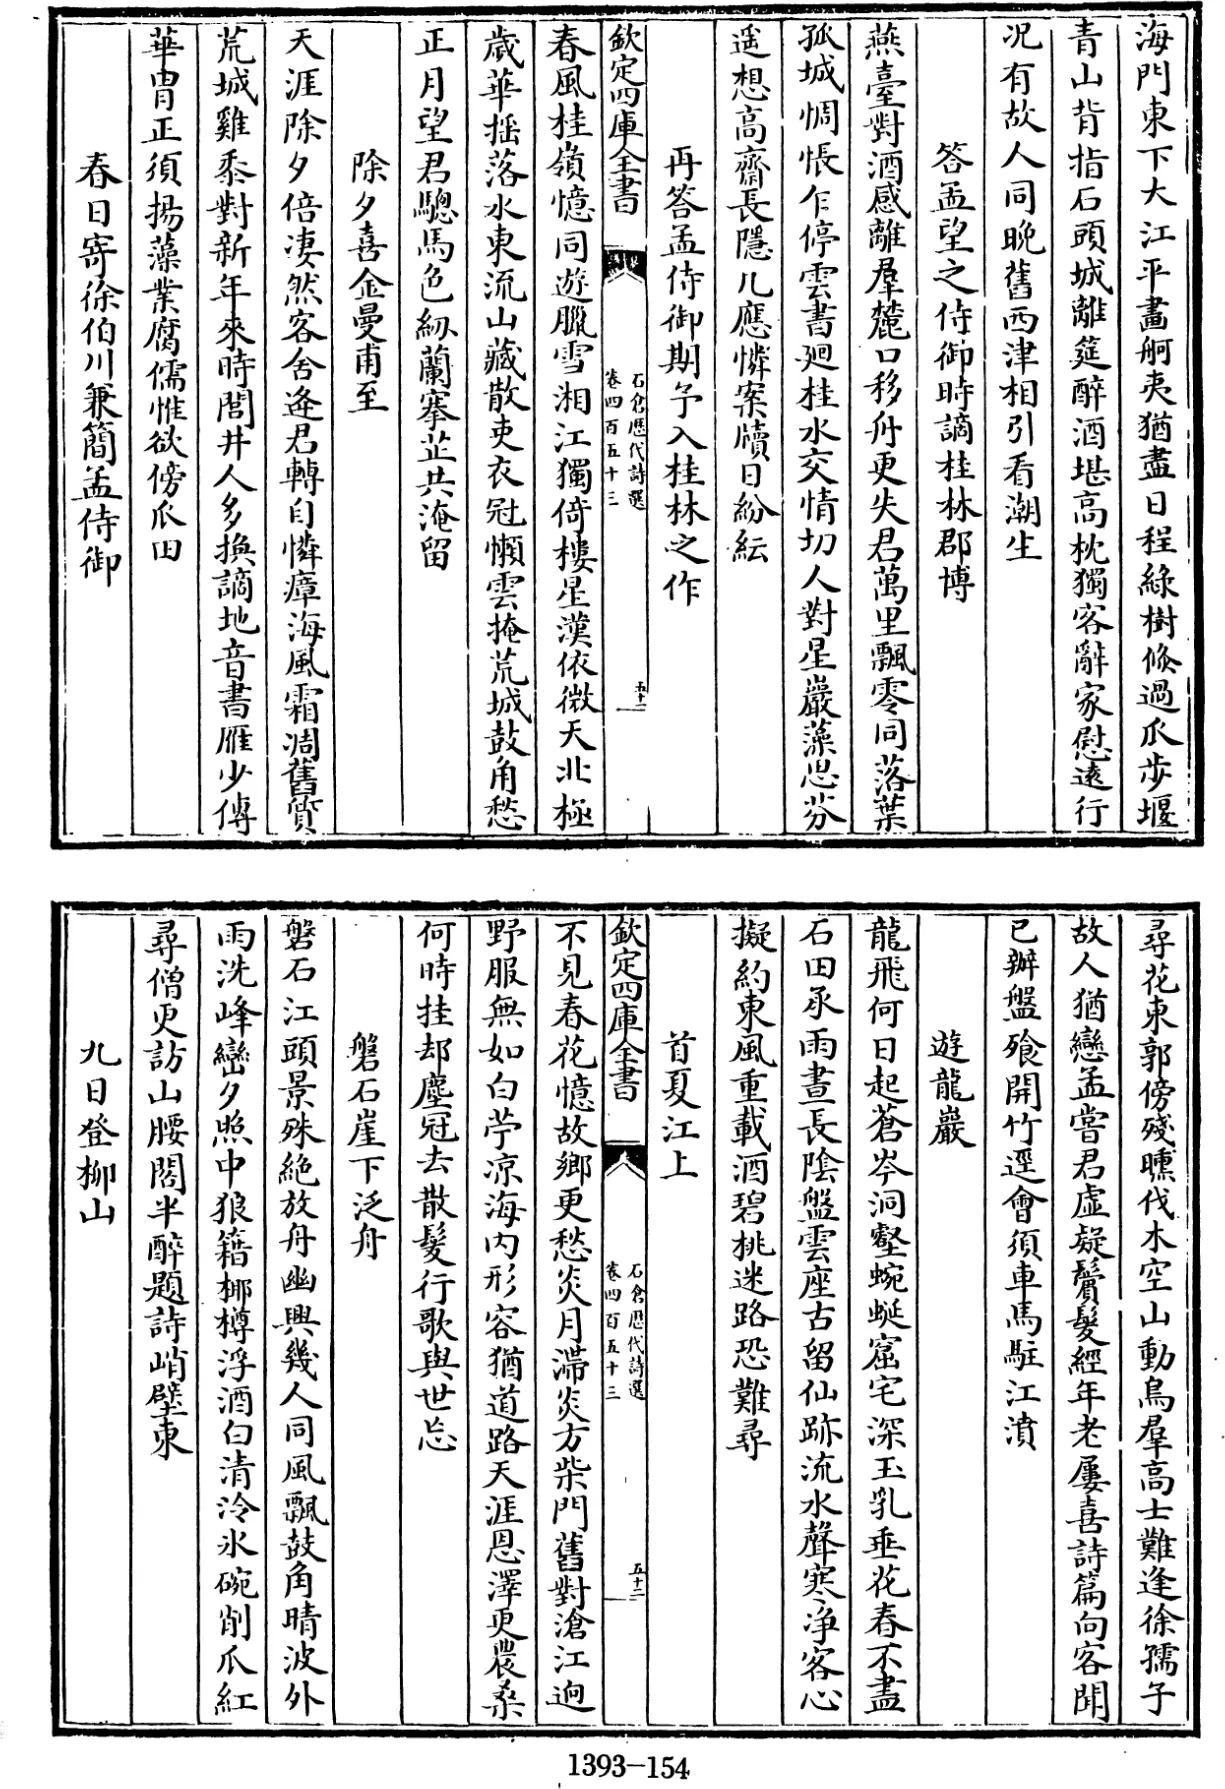 海門東下大江平畫舸夷猶盡日程綠樹倏過瓜步堰
青山背指石頭城離筵醉酒堪高枕獨客辭家慰遠行
况有故人同晚舊西津相引看潮生
答孟望之侍御時謫桂林郡博
燕臺對酒感離羣麓口移舟更失君萬里飄零同落葉
孤城惆悵乍停雲書廻桂水交情切人對星巖藻思芬
遥想高齋長隱几應憐案牘日紛紜
再答孟侍御期予入桂林之作
春風桂嶺憶同遊臘雪湘江獨倚樓星漢依微天北極
歲華揺落水東流山藏散吏衣冠懶雲掩荒城鼓角愁
正月望君驄馬色紉蘭搴芷共淹留
除夕喜金曼甫至
天涯除夕倍凄然客舍逢君轉自憐瘴海風霜凋舊質
荒城雞黍對新年來時閭井人多換謫地音書雁少傳
華胄正須揚藻業腐儒惟欲傍瓜田
春日寄徐伯川兼簡孟侍御
欽定四庫全書
石倉歷代詩選
卷四百五十三
五十一
尋花東郭傍殘曛伐木空山動鳥羣高士難逢徐孺子
故人猶戀孟嘗君虛疑鬢髮經年老屢喜詩篇向客聞
已辦盤飱開竹逕會須車馬駐江濆
遊龍巖
龍飛何日起蒼岑洞壑蜿蜒窟宅深玉乳垂花春不盡
石田承雨晝長陰盤雲座古留仙跡流水聲寒净客心
擬約東風重載酒碧桃迷路恐難尋
首夏江上
不見春花憶故鄉更愁炎月滯炎方柴門舊對滄江迥
野服無如白苧凉海内形容猶道路天涯恩澤更農桑
何時挂却塵冠去散髮行歌與世忘
磐石崖下泛舟
磐石江頭景殊絶放舟幽興幾人同風飄鼓角晴波外
雨洗峰巒夕照中狼籍椰樽浮酒白清泠氷碗削瓜紅
尋僧更訪山腰閣半醉題詩峭壁東
九日登柳山
欽定四庫全書
石倉歷代詩選
卷四百五十三
五十二
1393-154